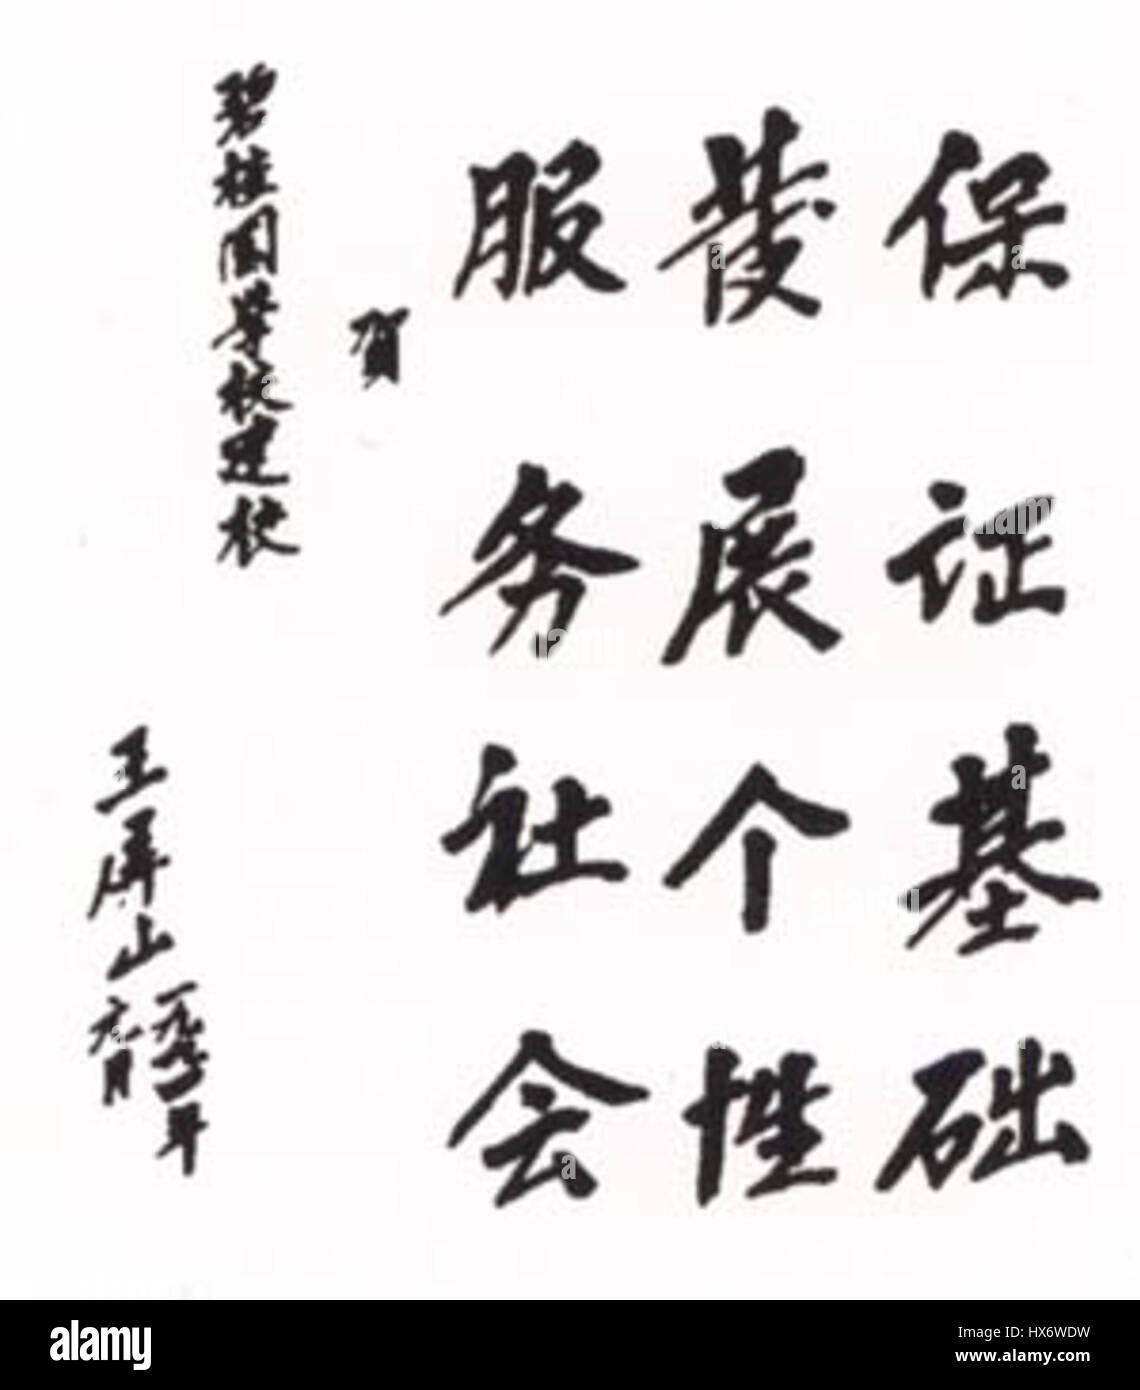 保证基础
發展个性
服务社会
贺
碧桂园学校建校
王屏山
一九九四年
六月
alamy
Image ID: HX6WDW
www.alamy.com